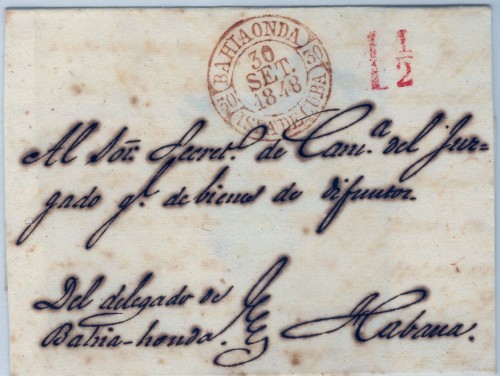 BAHIA ONDA
30
SET.
1848
30
30
ISLA DE CUBA
1 1/2
Al Sor. Secret.º de Cam.ª del Juz-
gado gl. de bienes de difuntos.
Del delegado de
Bahia-honda.
Habana.